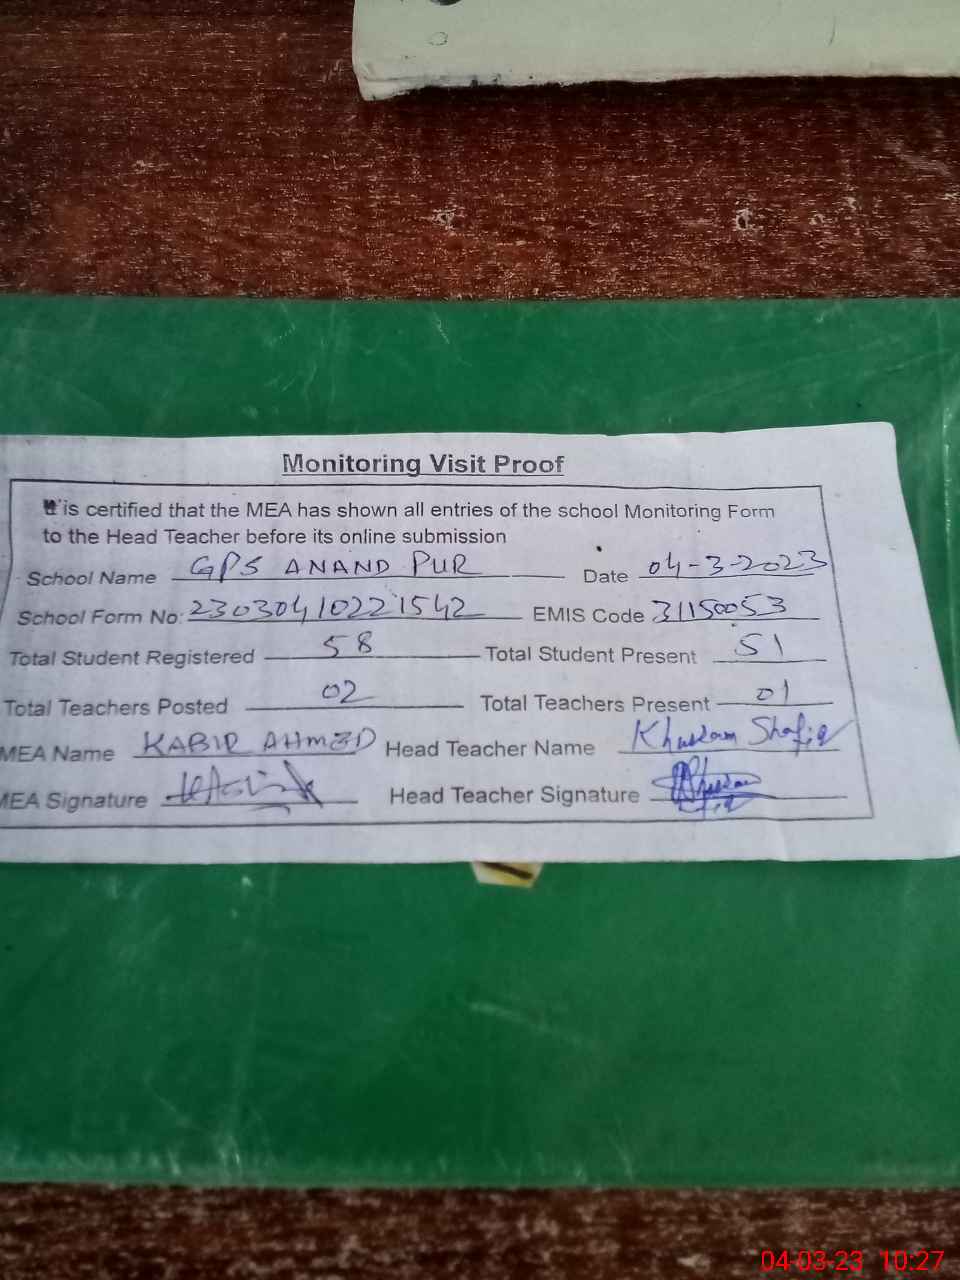 Monitoring Visit Proof
It is certified that the MEA has shown all entries of the school Monitoring Form
to the Head Teacher before its online submission
School Name GPS ANAND PUR Date 04-3-2023
School Form No: 230304102221542 EMIS Code 31150053
Total Student Registered 58 Total Student Present 51
Total Teachers Posted 02 Total Teachers Present 01
MEA Name KABIR AHMED Head Teacher Name Khurram Shafiq
MEA Signature Head Teacher Signature
04-03-23 10:27